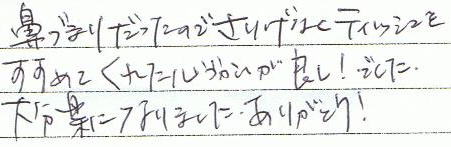 鼻づまりだったのでさりげなくティッシュを
すすめてくれた心づかいが良し！でした.
大分楽になりました.ありがとう！